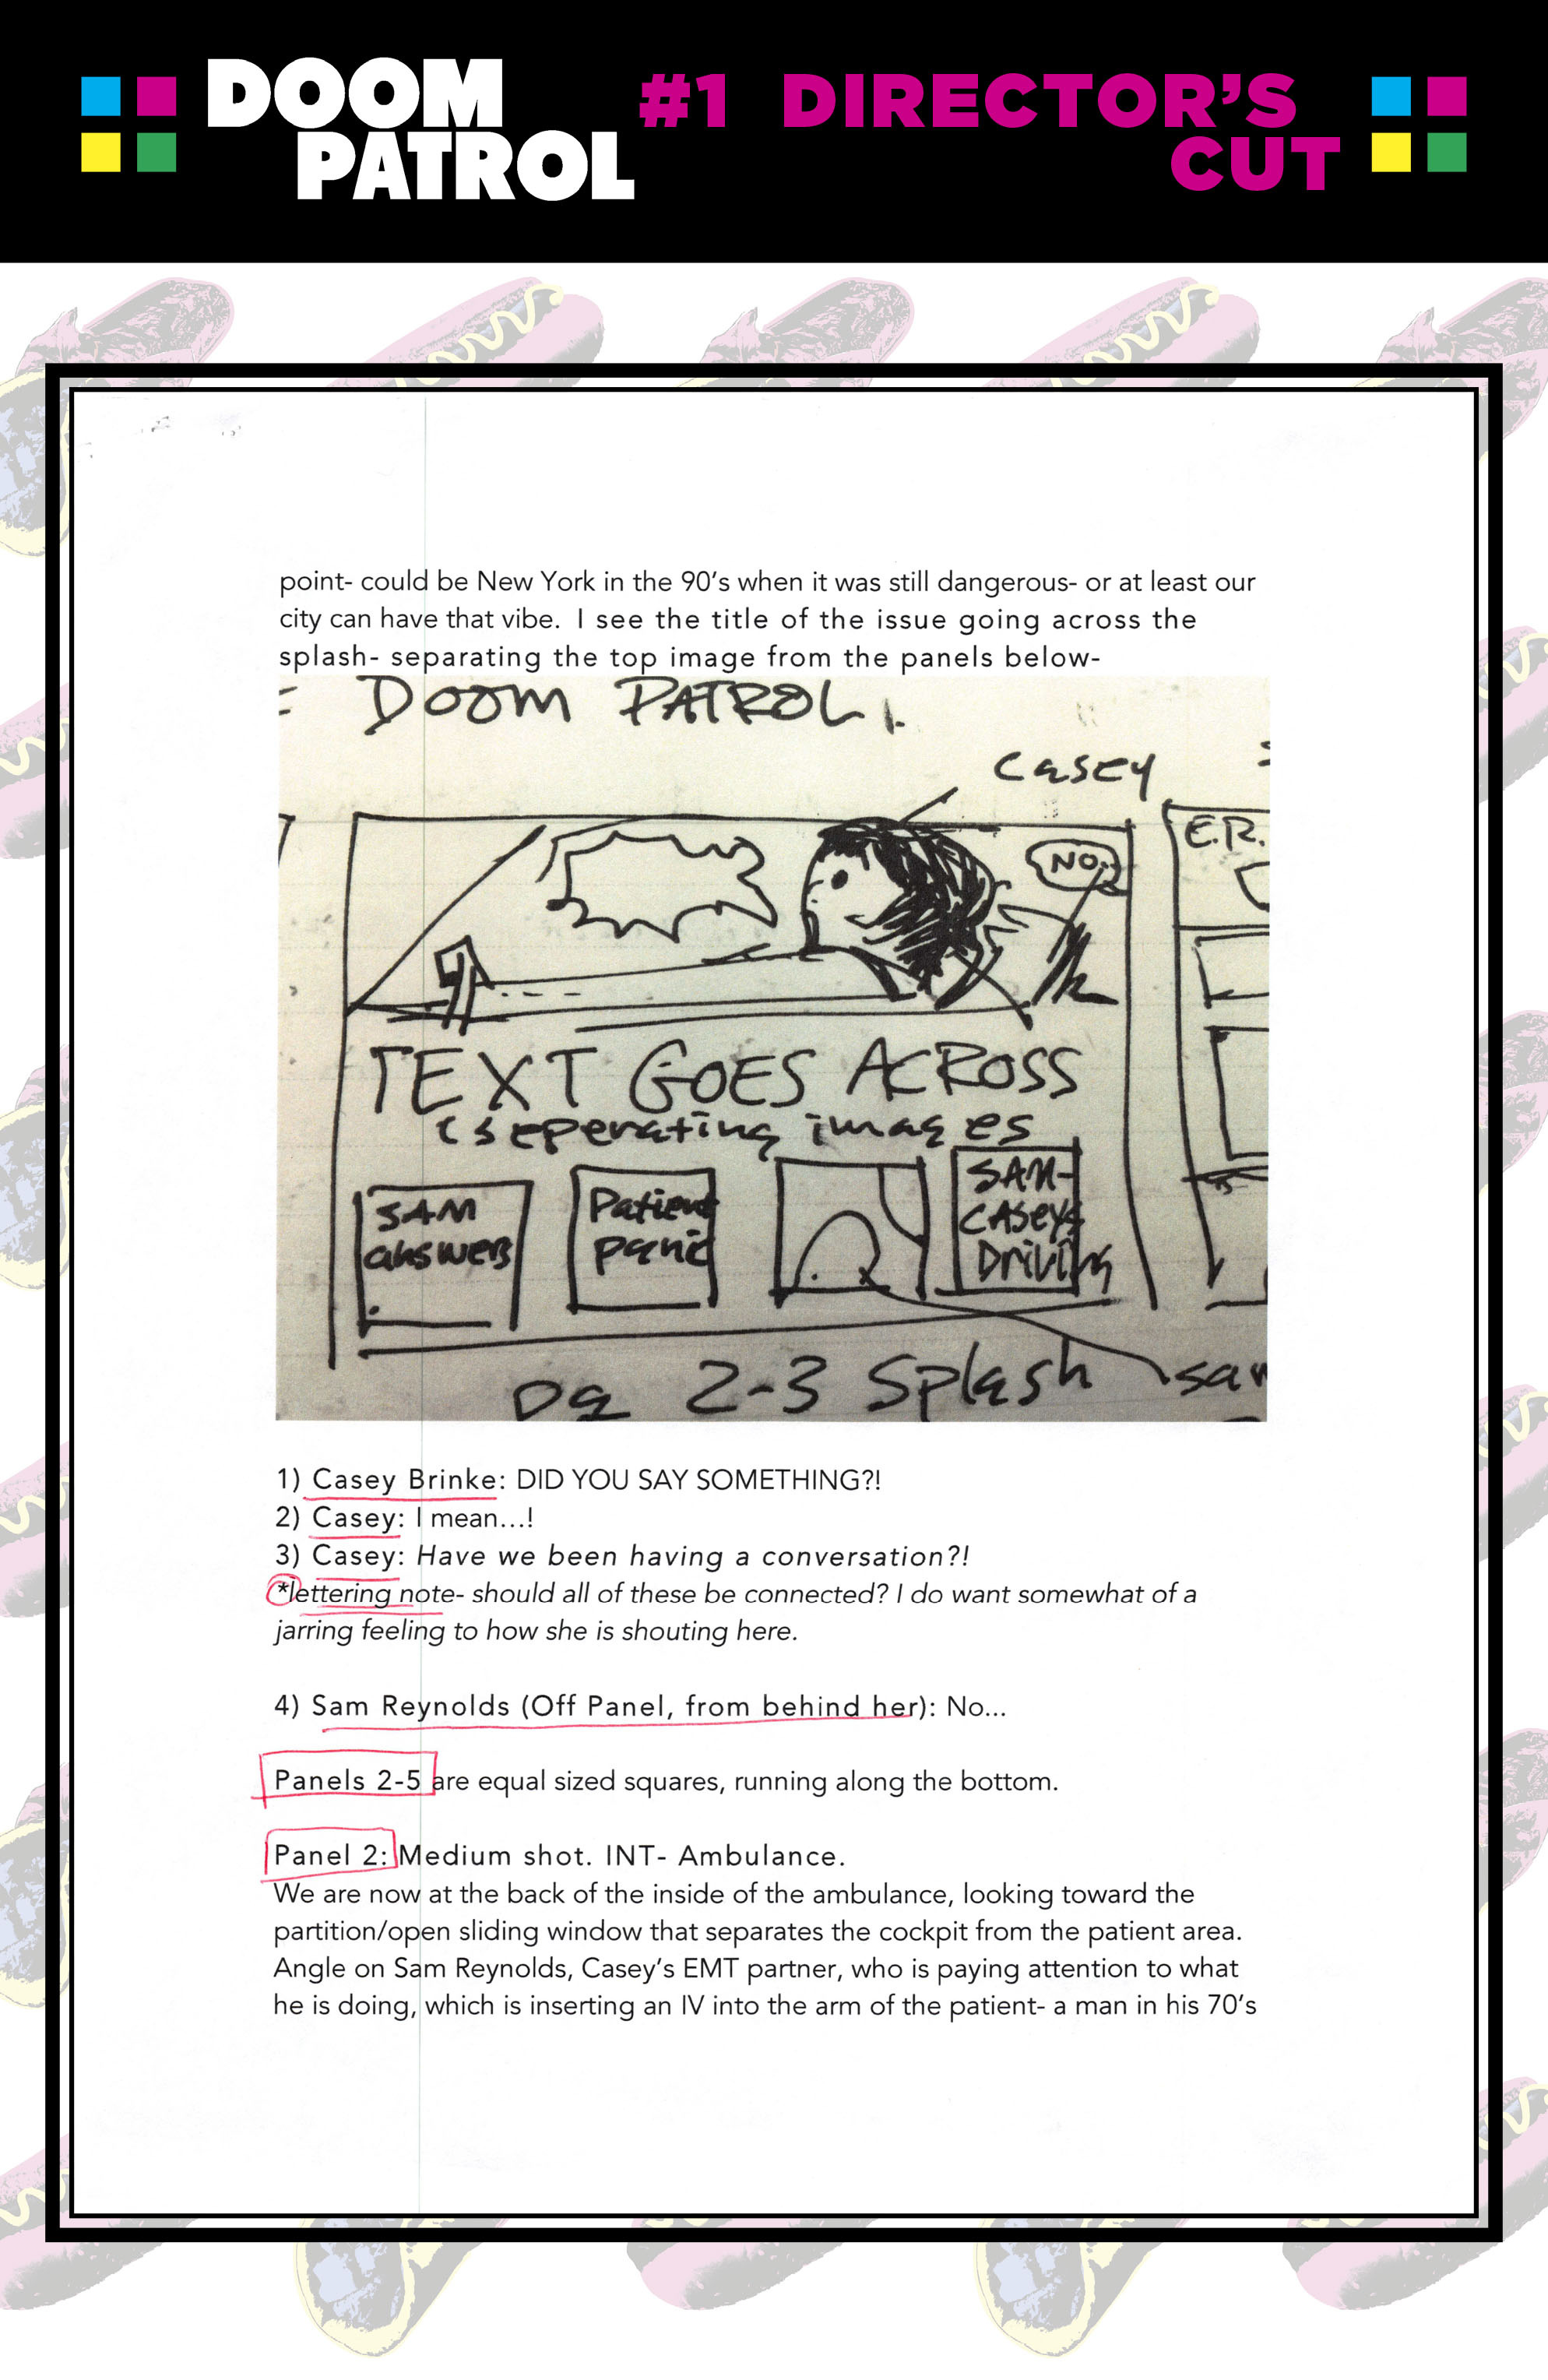 DOOM
PATROL
#1 DIRECTOR'S
CUT
point- could be New York in the 90's when it was still dangerous- or at least our
city can have that vibe. I see the title of the issue going across the
splash- separating the top image from the panels below-
= DOOM PATROL 1.
Casey
NO..
E.R.
TEXT GOES ACROSS
(seperating images
SAM
answers
Patient
panic
SAM-
CASEY'S
Driving
pg 2-3 Splash
1) Casey Brinke: DID YOU SAY SOMETHING?!
2) Casey: I mean...!
3) Casey: Have we been having a conversation?!
*lettering note- should all of these be connected? I do want somewhat of a
jarring feeling to how she is shouting here.
4) Sam Reynolds (Off Panel, from behind her): No...
Panels 2-5 are equal sized squares, running along the bottom.
Panel 2: Medium shot. INT- Ambulance.
We are now at the back of the inside of the ambulance, looking toward the
partition/open sliding window that separates the cockpit from the patient area.
Angle on Sam Reynolds, Casey's EMT partner, who is paying attention to what
he is doing, which is inserting an IV into the arm of the patient- a man in his 70's